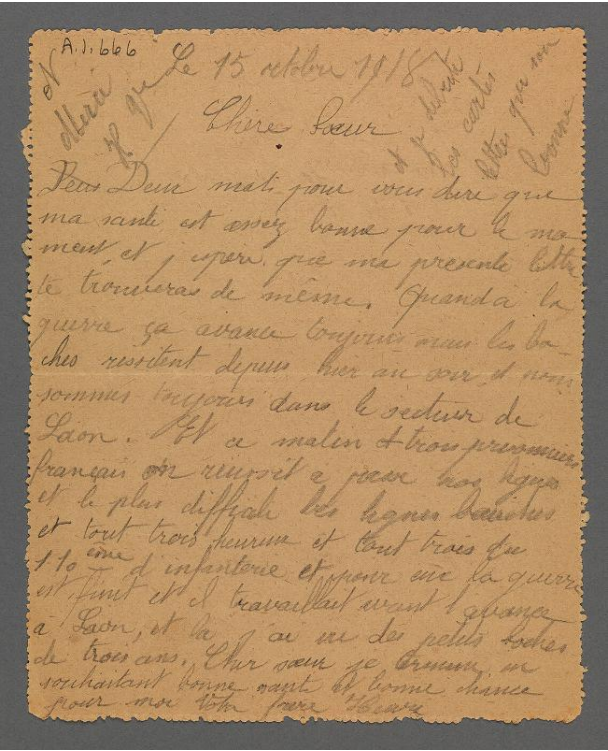 A.1.666
Le 15 octobre 1918
Merci
Les cartes
lettres que son
bonne
Chère Sœur
Deux moti pour vous dire que
ma santé est assez bonne pour le mo
ment, et j'espere que ma presente lettre
te trouveras de même. Quand a la
guerre ça avance toujours mais les bo-
ches resistent depuis hier au soir, et nous
sommes toujours dans le secteur de
Laon. Et ce matin trois prisonniers
français on reussit a passé nos lignes
et le plus difficile les lignes bauches
et tout trois heureux et tout trois du
110 ème d'infanterie et pour eux la guerre
est finit et il travaillait avant l'avance
à Laon, et la j'ai vu des petits boches
de trois ans. Cher sœur je termine en
souhaitant bonne santé et bonne chance
pour moi Votre frère